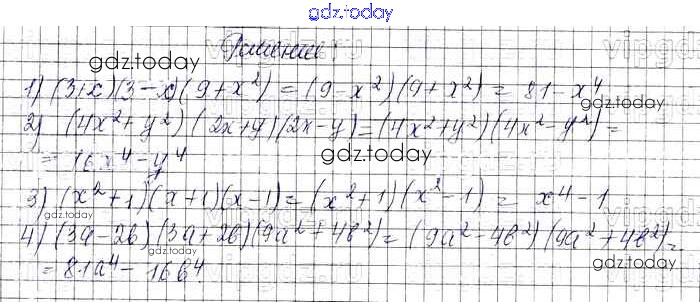 gdz.today
Решение:
gdz.today
1) (3+x)(3-x)(9+x²) = (9-x²)(9+x²) = 81-x⁴
gdz.today
2) (4x²+y²)(2x+y)(2x-y)=(4x²+y²)(4x²-y²)=
gdz.today
= 16x⁴-y⁴
3) (x²+1)(x+1)(x-1)=(x²+1)(x²-1)= x⁴-1
gdz.today
4) (3a-2b)(3a+2b)(9a²+4b²)=(9a²-4b²)(9a²+4b²)=
gdz.today
gdz.today
= 81a⁴-16b⁴